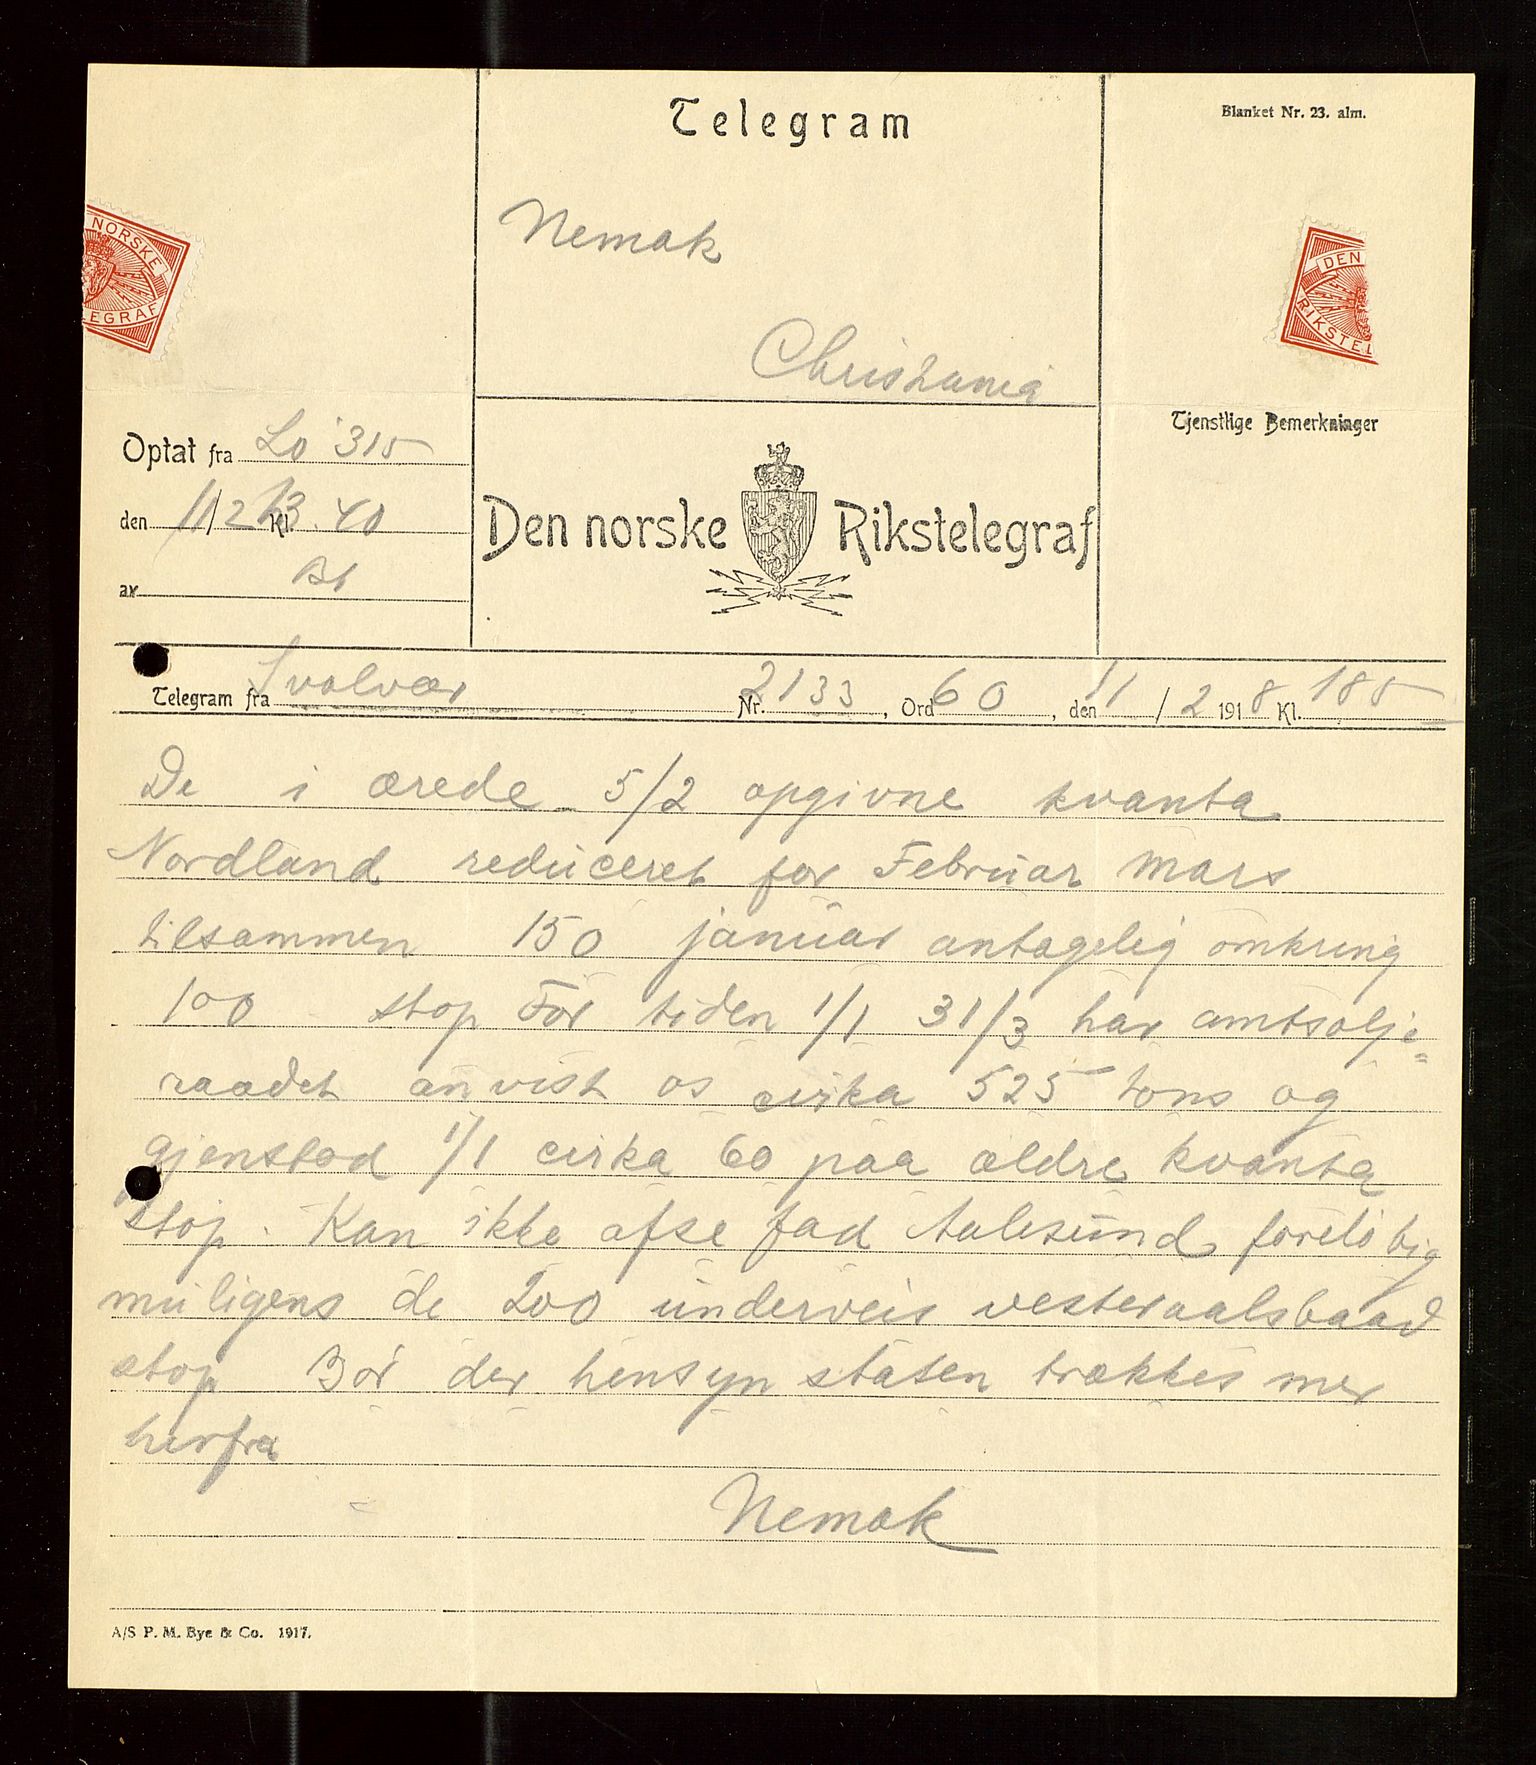 Telegram
Blanket Nr. 23. alm.
NORSKE
LEGRAF
DEN
RIKSTEL
Nemak
Christiania
Tjenstlige Bemerkninger
Optat fra Lo 315
den 11/2 Kl. 13.40
av
Den norske Rikstelegraf
Telegram fra Svolvær Nr. 2133, Ord 60, den 11/2 1918 Kl. 185
De i ærede 5/2 opgivne kvanta
Nordland reduceret for Februar Mars
tilsammen 150 januar antagelig omkring
100 stop For tiden 1/1 31/3 har amtsolje=
raadet anvist os cirka 525 tons og
gjenstod 1/1 cirka 60 paa ældre kvanta
stop. Kan ikke afse fad Aalesund foreløbig
muligens de 200 underveis vesteraalsbaad
stop Bør der hensyn staten trækkes mer
herfra
Nemak
A/S P. M. Bye & Co. 1917.